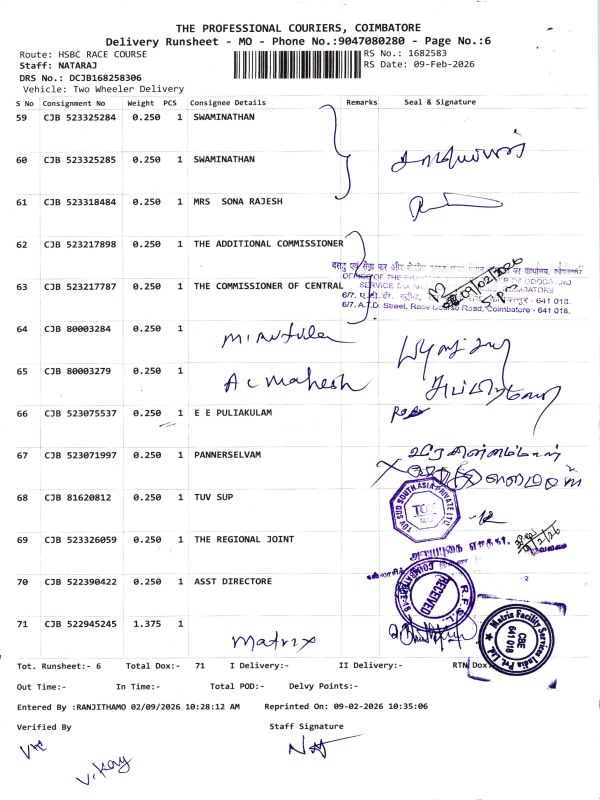 THE PROFESSIONAL COURIERS, COIMBATORE
Delivery Runsheet - MO - Phone No.:9047080280 - Page No.:6
Route: HSBC RACE COURSE
RS No.: 1682583
Staff: NATARAJ
RS Date: 09-Feb-2026
DRS No.: DCJB168258306
Vehicle: Two Wheeler Delivery
S No Consignment No Weight PCS Consignee Details Remarks Seal & Signature
59 CJB 523325284 0.250 1 SWAMINATHAN
60 CJB 523325285 0.250 1 SWAMINATHAN
61 CJB 523318484 0.250 1 MRS SONA RAJESH
62 CJB 523217898 0.250 1 THE ADDITIONAL COMMISSIONER
63 CJB 523217787 0.250 1 THE COMMISSIONER OF CENTRAL
6/7, A.T.D. Street, Race Course Road, Coimbatore - 641 018.
09/02/2026
64 CJB 80003284 0.250 1
65 CJB 80003279 0.250 1 A C Mahesh
66 CJB 523075537 0.250 1 E E PULIAKULAM
67 CJB 523071997 0.250 1 PANNERSELVAM
68 CJB 81620812 0.250 1 TUV SUP
TUV SUD SOUTH ASIA PRIVATE LTD
69 CJB 523326059 0.250 1 THE REGIONAL JOINT
9/2/26
70 CJB 522390422 0.250 1 ASST DIRECTORE
RECEIVED
R.F.S.L.
COIMBATORE
71 CJB 522945245 1.375 1 Matrix
Matrix Facility Services India Pvt. Ltd.
CBE
641 018
Tot. Runsheet:- 6 Total Dox:- 71 I Delivery:- II Delivery:- RTN Dox:
Out Time:- In Time:- Total POD:- Delvy Points:-
Entered By :RANJITHAMO 02/09/2026 10:28:12 AM Reprinted On: 09-02-2026 10:35:06
Verified By Staff Signature